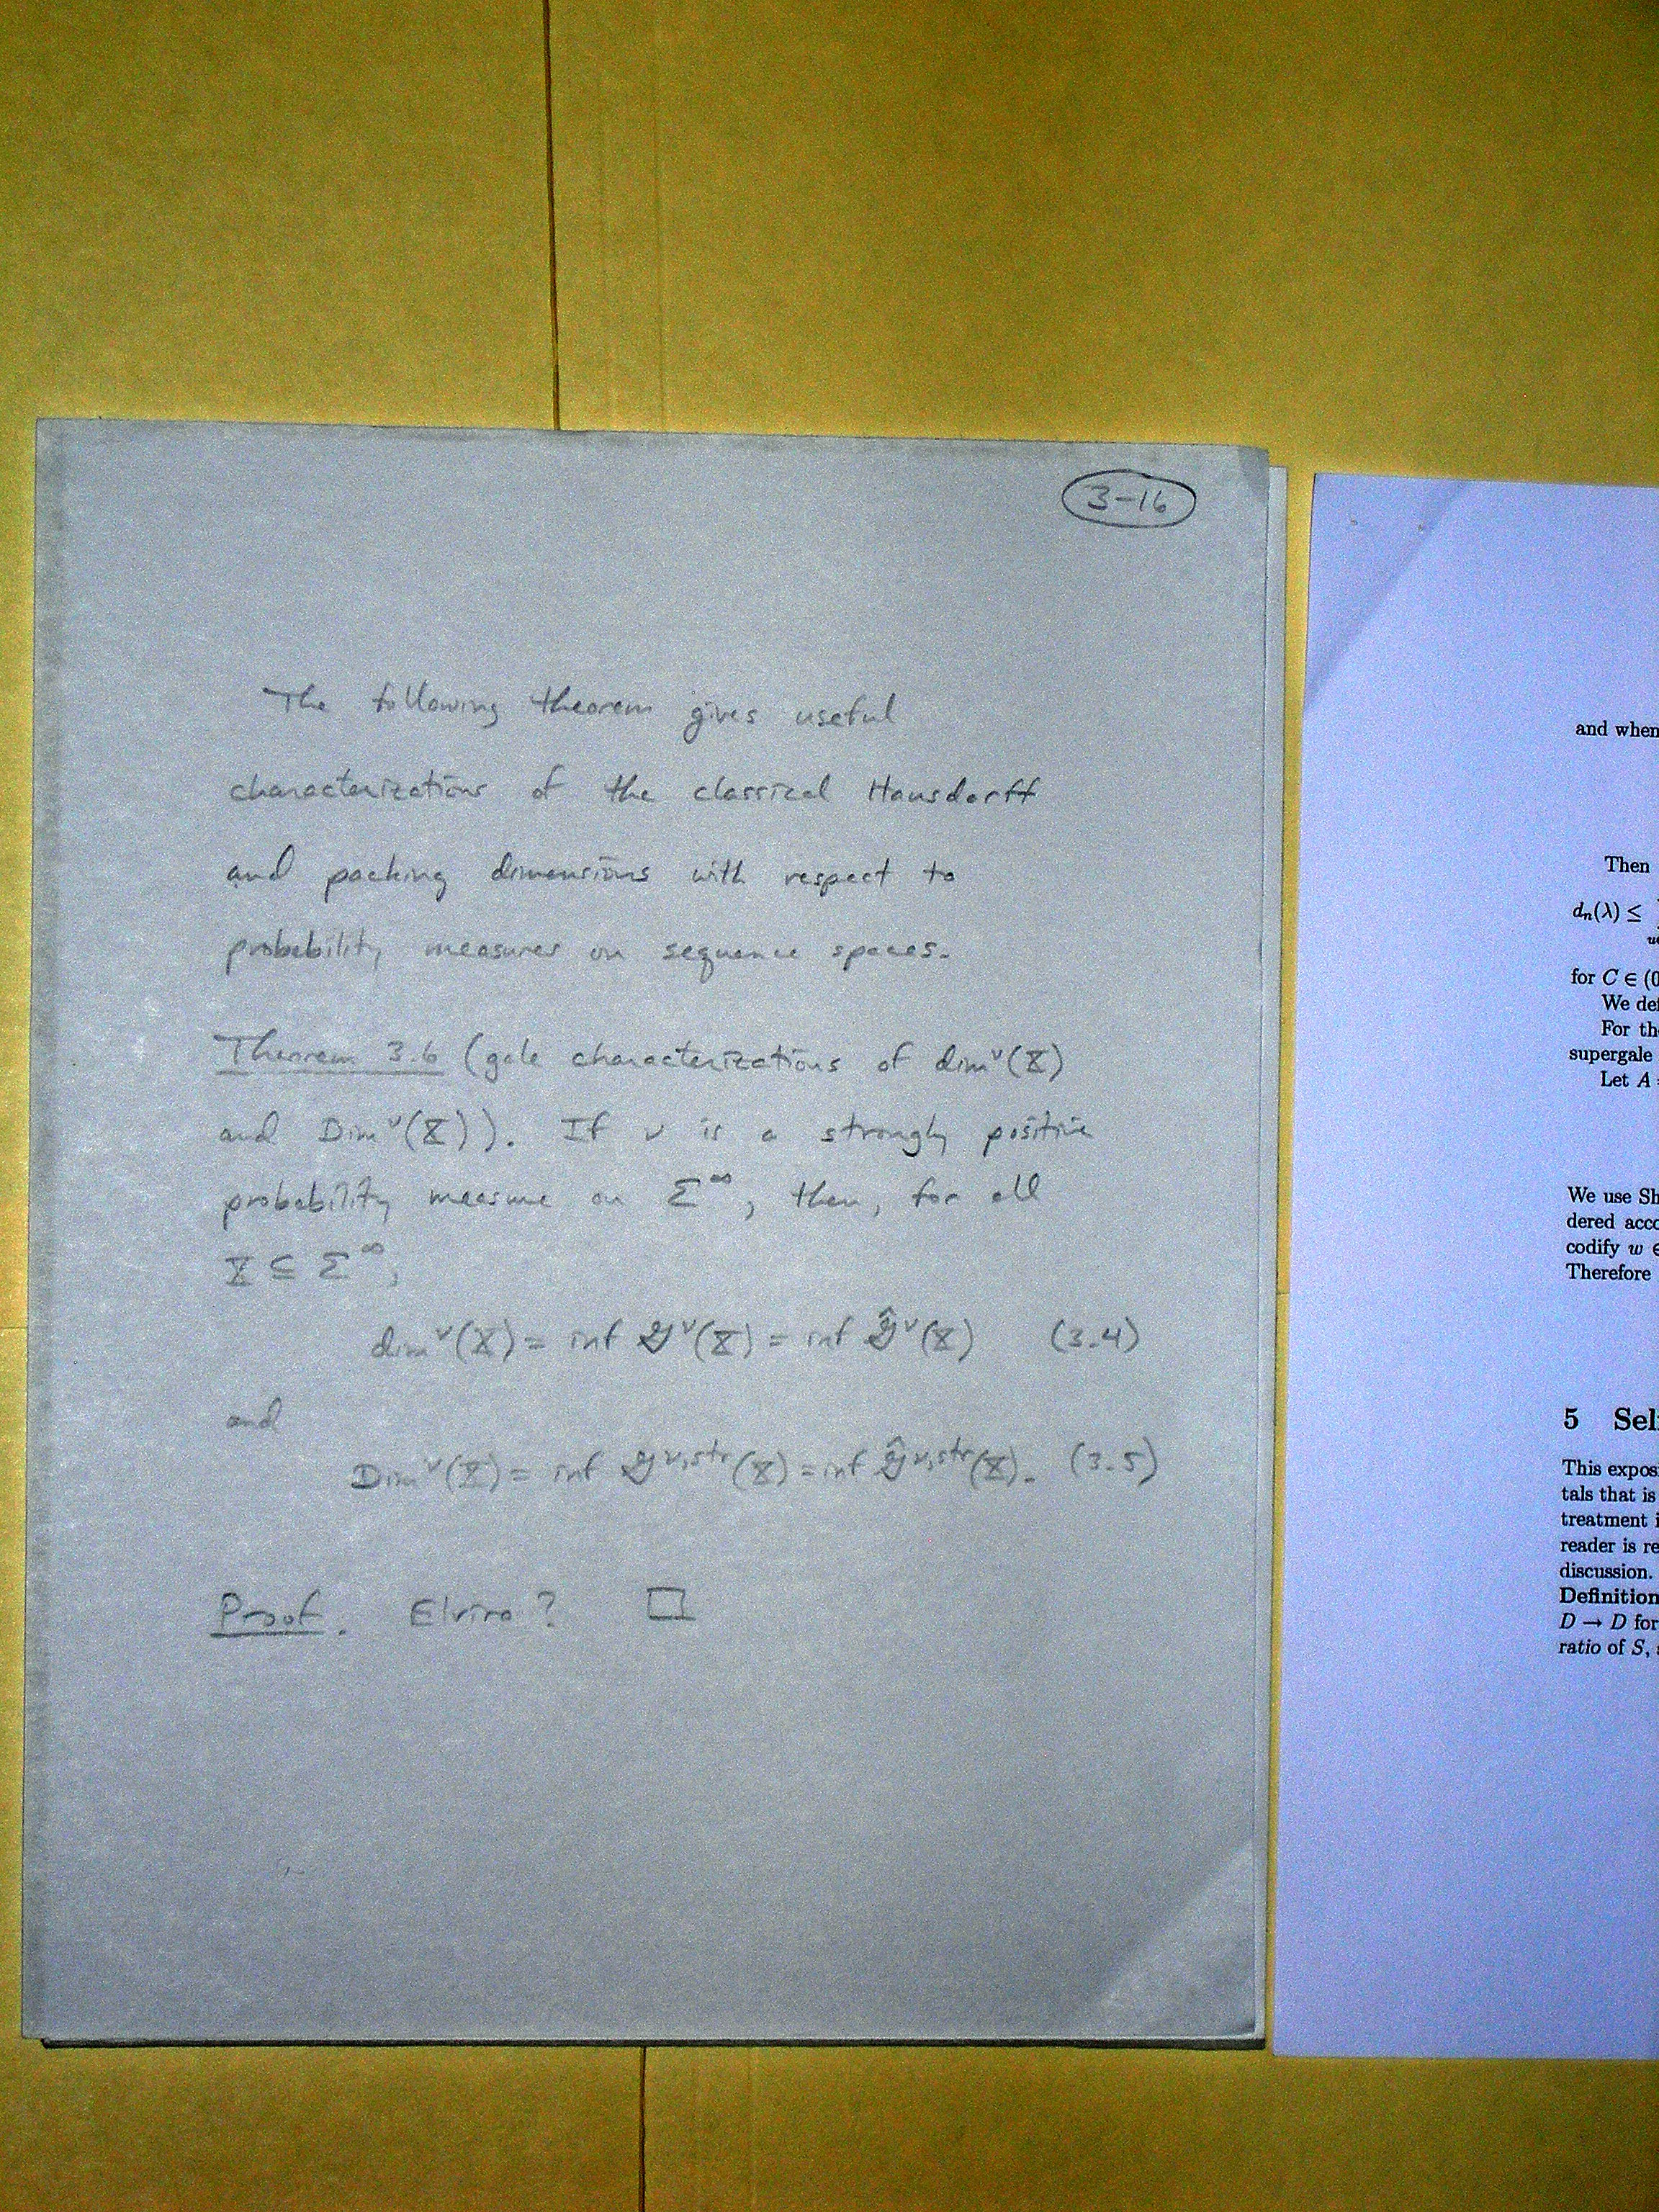 3-16
The following theorem gives useful
characterizations of the classical Hausdorff
and packing dimensions with respect to
probability measures on sequence spaces.
Theorem 3.6 (gale characterizations of dim^ν(X)
and Dim^ν(X)). If ν is a strongly positive
probability measure on Σ^∞, then, for all
X ⊆ Σ^∞,
dim^ν(X) = inf 𝒢^ν(X) = inf 𝒢̂^ν(X) (3.4)
and
Dim^ν(X) = inf 𝒢^ν,str(X) = inf 𝒢̂^ν,str(X). (3.5)
Proof. Elvira? □
and when
Then
dₙ(λ) ≤
for C ∈ (0
We def
For th
supergale
Let A
We use Sh
dered acco
codify w ∈
Therefore
5 Sel
This expos
tals that is
treatment i
reader is re
discussion.
Definition
D → D for
ratio of S,